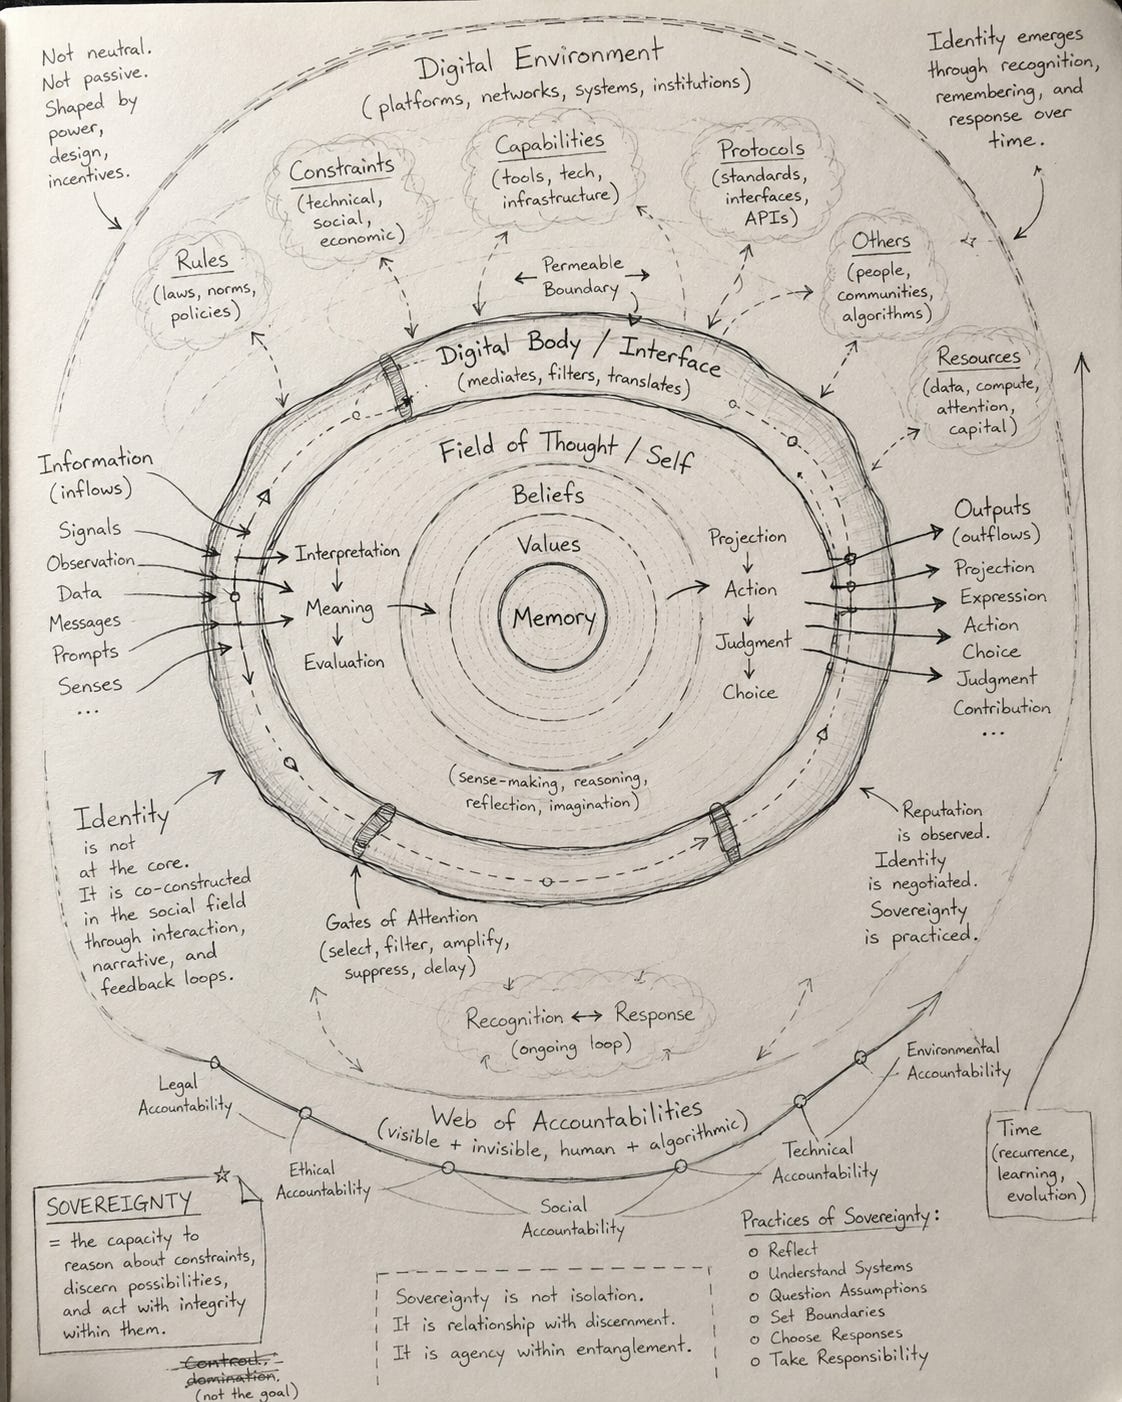 Not neutral.
Not passive.
Shaped by
power,
design,
incentives.
Digital Environment
(platforms, networks, systems, institutions)
Identity emerges
through recognition,
remembering, and
response over
time.
Rules
(laws, norms,
policies)
Constraints
(technical,
social,
economic)
Capabilities
(tools, tech,
infrastructure)
Protocols
(standards,
interfaces,
APIs)
Others
(people,
communities,
algorithms)
Resources
(data, compute,
attention,
capital)
Permeable
Boundary
Digital Body / Interface
(mediates, filters, translates)
Field of Thought / Self
Beliefs
Values
Memory
(sense-making, reasoning,
reflection, imagination)
Information
(inflows)
Signals
Observation
Data
Messages
Prompts
Senses
...
Interpretation
Meaning
Evaluation
Projection
Action
Judgment
Choice
Outputs
(outflows)
Projection
Expression
Action
Choice
Judgment
Contribution
...
Identity
is not
at the core.
It is co-constructed
in the social field
through interaction,
narrative, and
feedback loops.
Gates of Attention
(select, filter, amplify,
suppress, delay)
Reputation
is observed.
Identity
is negotiated.
Sovereignty
is practiced.
Recognition ↔ Response
(ongoing loop)
Web of Accountabilities
(visible + invisible, human + algorithmic)
Legal
Accountability
Ethical
Accountability
Social
Accountability
Technical
Accountability
Environmental
Accountability
Time
(recurrence,
learning,
evolution)
SOVEREIGNTY
= the capacity to
reason about constraints,
discern possibilities,
and act with integrity
within them.
Control.
domination.
(not the goal)
Sovereignty is not isolation.
It is relationship with discernment.
It is agency within entanglement.
Practices of Sovereignty:
o Reflect
o Understand Systems
o Question Assumptions
o Set Boundaries
o Choose Responses
o Take Responsibility